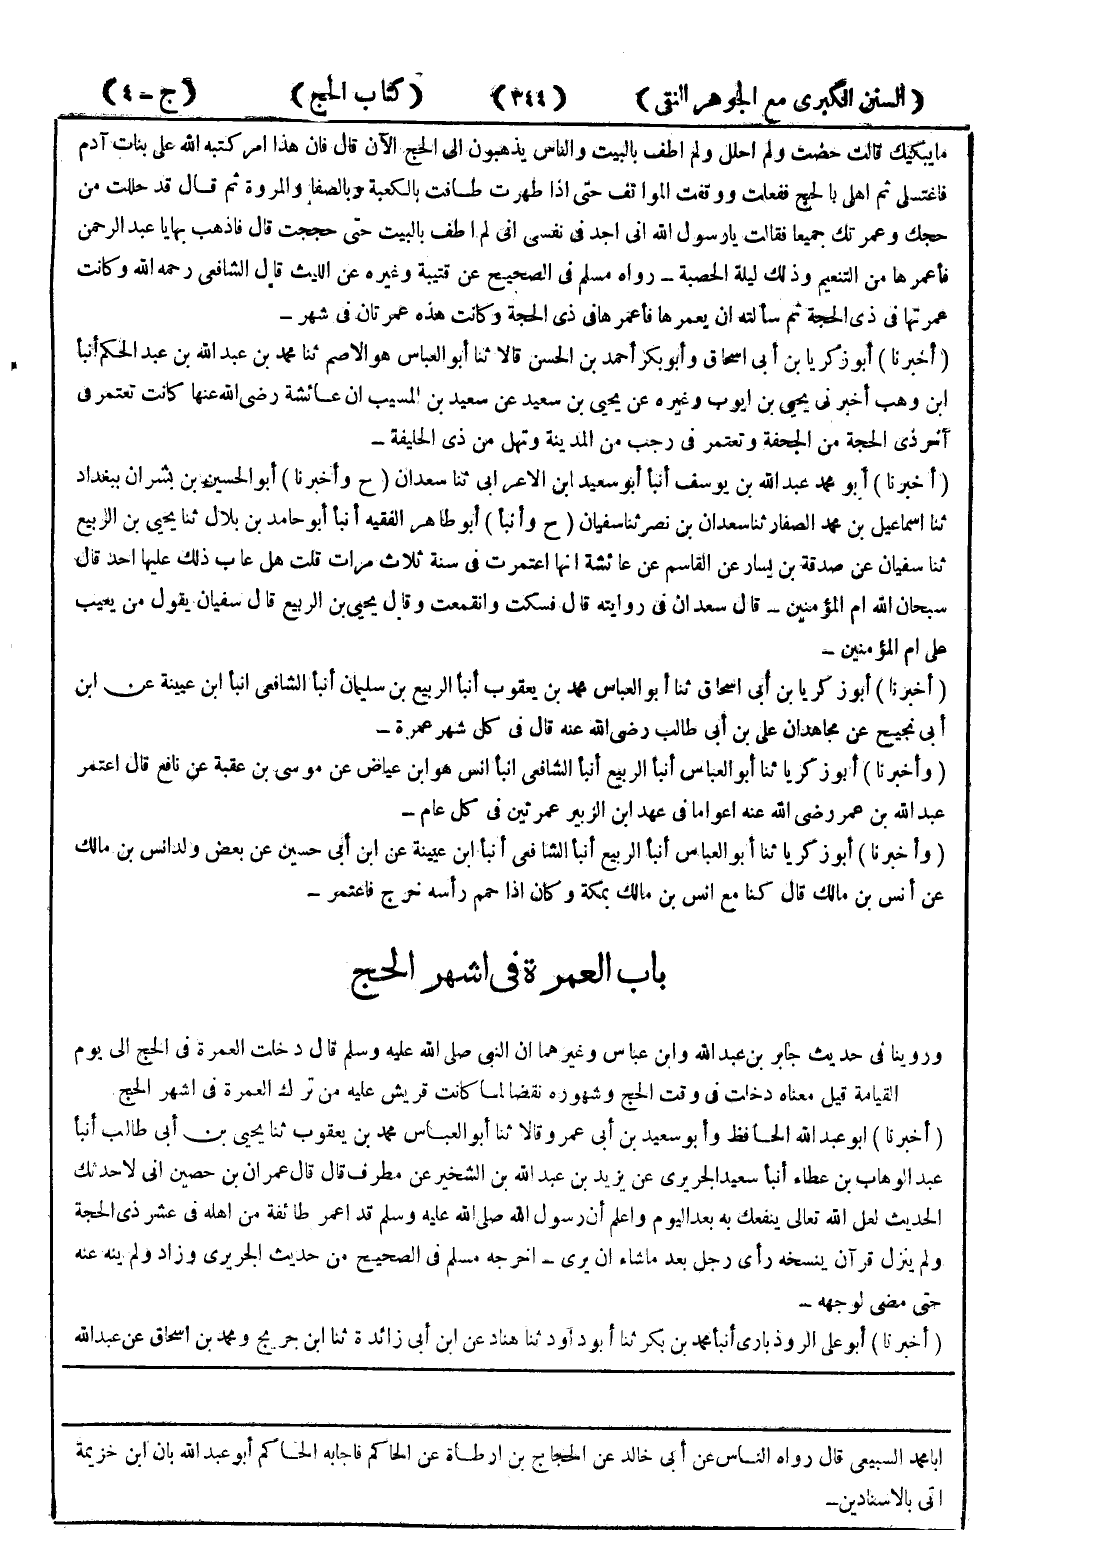 (السنن الكبرى مع الجوهر النقى) (٣٤٤) (كتاب الحج) (ج-٤)
مايبكيك قالت حضت ولم احلل ولم اطف بالبيت والناس يذهبون الى الحج الآن قال فان هذا امر كتبه الله على بنات آدم
فاغتسلى ثم اهلى بالحج ففعلت ووقفت المواقف حتى اذا طهرت طافت بالكعبة وبالصفا والمروة ثم قال قد حللت من
حجك وعمرتك جميعا فقالت يارسول الله انى اجد فى نفسى انى لم اطف بالبيت حتى حججت قال فاذهب بها يا عبد الرحمن
فأعمرها من التنعيم وذلك ليلة الحصبة ــ رواه مسلم فى الصحيح عن قتيبة وغيره عن الليث قال الشافعى رحمه الله وكانت
عمرتها فى ذى الحجة ثم سألته ان يعمرها فأعمرها فى ذى الحجة وكانت هذه عمرتان فى شهر ــ
(أخبرنا) أبو زكريا بن أبى اسحاق وأبو بكر أحمد بن الحسن قالا ثنا أبو العباس هو الاصم ثنا محمد بن عبد الله بن عبد الحكم أنبأ
ابن وهب أخبرنى يحيى بن ايوب وغيره عن يحيى بن سعيد عن سعيد بن المسيب ان عائشة رضى الله عنها كانت تعتمر فى
آخر ذى الحجة من الجحفة وتعتمر فى رجب من المدينة وتهل من ذى الحليفة ــ
(أخبرنا) أبو محمد عبد الله بن يوسف أنبأ أبو سعيد ابن الاعرابى ثنا سعدان (ح وأخبرنا) أبو الحسين بن بشران ببغداد
ثنا اسماعيل بن محمد الصفار ثنا سعدان بن نصر ثنا سفيان (ح وأنبأ) أبو طاهر الفقيه أنبأ أبو حامد بن بلال ثنا يحيى بن الربيع
ثنا سفيان عن صدقة بن يسار عن القاسم عن عائشة انها اعتمرت فى سنة ثلاث مرات قلت هل عاب ذلك عليها احد قال
سبحان الله ام المؤمنين ــ قال سعدان فى روايته قال فسكت وانقمعت وقال يحيى بن الربيع قال سفيان يقول من يعيب
على ام المؤمنين ــ
(أخبرنا) أبو زكريا بن أبى اسحاق ثنا أبو العباس محمد بن يعقوب أنبأ الربيع بن سليمان أنبأ الشافعى انبأ ابن عيينة عن ابن
أبى نجيح عن مجاهد ان على بن أبى طالب رضى الله عنه قال فى كل شهر عمرة ــ
(وأخبرنا) أبو زكريا ثنا أبو العباس أنبأ الربيع أنبأ الشافعى انبأ انس هو ابن عياض عن موسى بن عقبة عن نافع قال اعتمر
عبد الله بن عمر رضى الله عنه اعواما فى عهد ابن الزبير عمرتين فى كل عام ــ
(وأخبرنا) أبو زكريا ثنا أبو العباس أنبأ الربيع أنبأ الشافعى أنبأ ابن عيينة عن ابن أبى حسين عن بعض ولد انس بن مالك
عن أنس بن مالك قال كنا مع انس بن مالك بمكة وكان اذا حمم رأسه خرج فاعتمر ــ
باب العمرة فى اشهر الحج
وروينا فى حديث جابر بن عبد الله وابن عباس وغيرهما ان النبى صلى الله عليه وسلم قال دخلت العمرة فى الحج الى يوم
القيامة قيل معناه دخلت فى وقت الحج وشهوره نقضا لما كانت قريش عليه من ترك العمرة فى اشهر الحج
(أخبرنا) ابو عبد الله الحافظ وأبو سعيد بن أبى عمرو قالا ثنا أبو العباس محمد بن يعقوب ثنا يحيى بن أبى طالب أنبأ
عبد الوهاب بن عطاء أنبأ سعيد الجريرى عن يزيد بن عبد الله بن الشخير عن مطرف قال قال عمران بن حصين انى لاحدثك
الحديث لعل الله تعالى ينفعك به بعد اليوم واعلم أن رسول الله صلى الله عليه وسلم قد اعمر طائفة من اهله فى عشر ذى الحجة
ولم ينزل قرآن ينسخه رأى رجل بعد ماشاء ان يرى ــ اخرجه مسلم فى الصحيح من حديث الجريرى وزاد ولم ينه عنه
حتى مضى لوجهه ــ
(أخبرنا) أبو على الروذبارى أنبأ محمد بن بكر ثنا أبو داود ثنا هناد عن ابن أبى زائدة ثنا ابن جريج ومحمد بن اسحاق عن عبد الله
ابا محمد السبيعى قال رواه الناس عن أبى خالد عن الحجاج بن ارطاة عن الحاكم فاجابه الحاكم أبو عبد الله بان ابن خزيمة
اتى بالاسنادين ــ